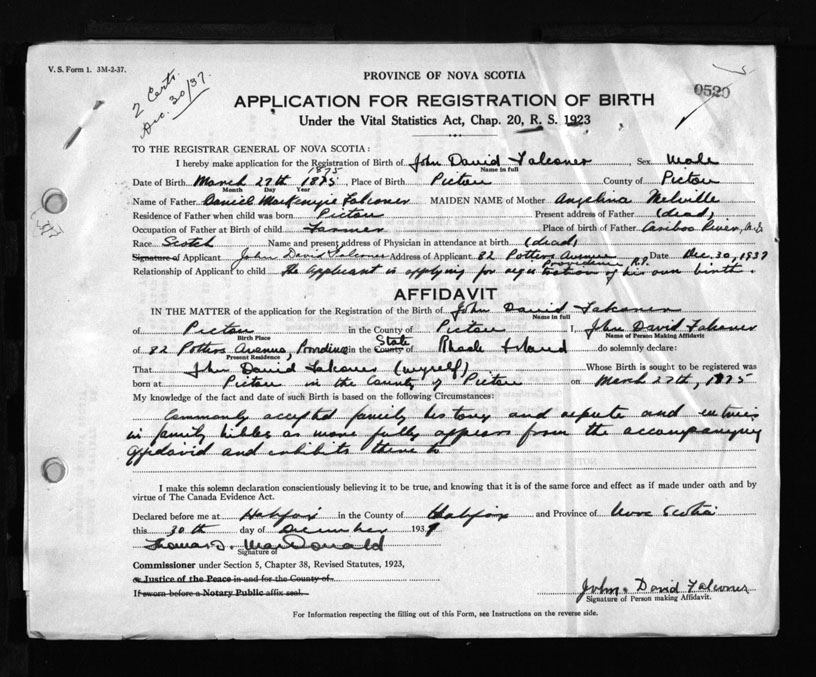 V. S. Form 1. 3M-2-37.
2 Certs.
Dec. 30/37.
0520
PROVINCE OF NOVA SCOTIA
APPLICATION FOR REGISTRATION OF BIRTH
Under the Vital Statistics Act, Chap. 20, R. S. 1923
TO THE REGISTRAR GENERAL OF NOVA SCOTIA:
I hereby make application for the Registration of Birth of John David Falconer, Sex Male
Name in full
1875
Date of Birth March 27th 1875, Place of Birth Pictou County of Pictou
Month Day Year
Name of Father Daniel MacKenzie Falconer MAIDEN NAME of Mother Angelina Melville
Residence of Father when child was born Pictou Present address of Father (dead)
Occupation of Father at Birth of child Farmer Place of birth of Father Cariboo River, N.S.
Race Scotch Name and present address of Physician in attendance at birth (dead)
Signature of Applicant John David Falconer Address of Applicant 82 Potters Avenue Date Dec. 30, 1937
Providence R.I.
Relationship of Applicant to child The Applicant is applying for registration of his own birth.
AFFIDAVIT
IN THE MATTER of the application for the Registration of the Birth of John David Falconer
Name in full
of Pictou in the County of Pictou I, John David Falconer
Birth Place Name of Person Making Affidavit
State
of 82 Potters Avenue, Providence in the County of Rhode Island do solemnly declare:
Present Residence
That John David Falconer (myself) Whose Birth is sought to be registered was
born at Pictou in the County of Pictou on March 27th, 1875
My knowledge of the fact and date of such Birth is based on the following Circumstances:
Commonly accepted family history and repute and entries
in family bibles as more fully appears from the accompanying
affidavid and exhibits thereto
I make this solemn declaration conscientiously believing it to be true, and knowing that it is of the same force and effect as if made under oath and by
virtue of The Canada Evidence Act.
Declared before me at Halifax in the County of Halifax and Province of Nova Scotia
this 30th day of December 1937
Thomas D. MacDonald
Signature of
Commissioner under Section 5, Chapter 38, Revised Statutes, 1923,
a Justice of the Peace in and for the County of
If sworn before a Notary Public affix seal.
John David Falconer
Signature of Person making Affidavit.
For Information respecting the filling out of this Form, see Instructions on the reverse side.